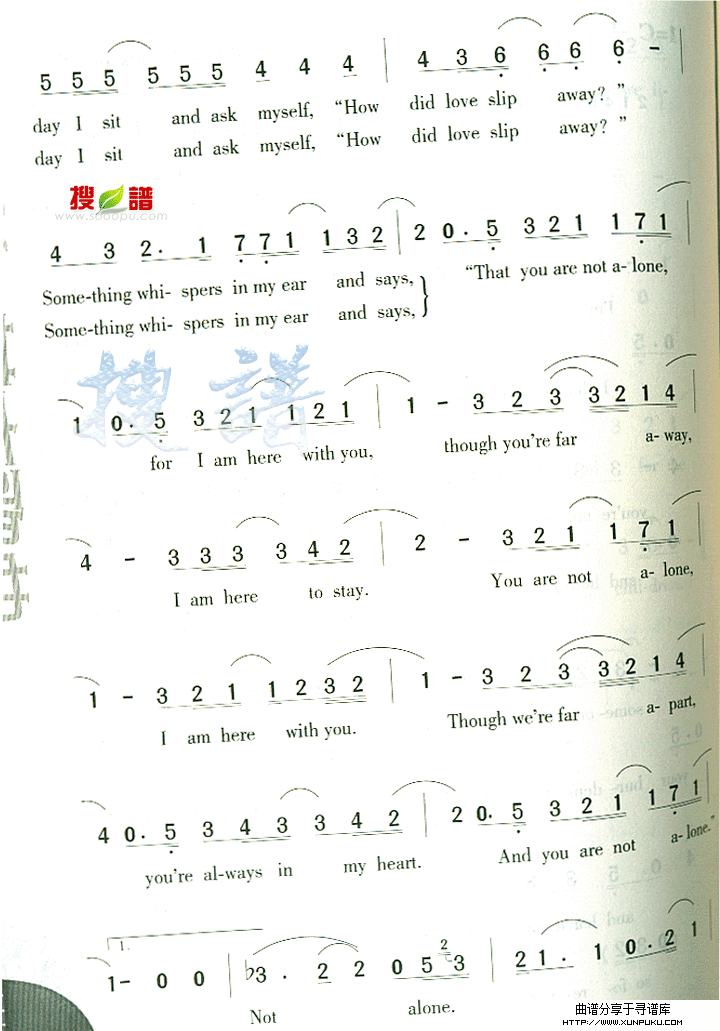 5 5 5 5 5 5 4 4 4 | 4 3 6 6 6 6 – |
day I sit and ask myself, “How did love slip away? ”
day I sit and ask myself, “How did love slip away? ”
搜 譜
www.sooopu.com
4 3 2· 1 7 7 1 1 3 2 | 2 0· 5 3 2 1 1 7 1 |
Some-thing whi- spers in my ear and says, “That you are not a- lone,
Some-thing whi- spers in my ear and says,
搜 譜
1 0· 5 3 2 1 1 2 1 | 1 – 3 2 3 3 2 1 4 |
for I am here with you, though you're far a- way,
4 – 3 3 3 3 4 2 | 2 – 3 2 1 1 7 1 |
I am here to stay. You are not a- lone,
1 – 3 2 1 1 2 3 2 | 1 – 3 2 3 3 2 1 4 |
I am here with you. Though we're far a- part,
4 0· 5 3 4 3 3 4 2 | 2 0· 5 3 2 1 1 7 1 |
you're al-ways in my heart. And you are not a- lone.”
1.
1 – 0 0 | ♭3· 2 2 0 5 2 3 | 2 1· 1 0· 2 1 |
Not alone.
曲谱分享于寻谱库
HTTP://WWW.XUNPUKU.COM